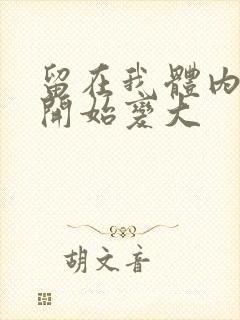 留在我體內
開始變大
胡文音